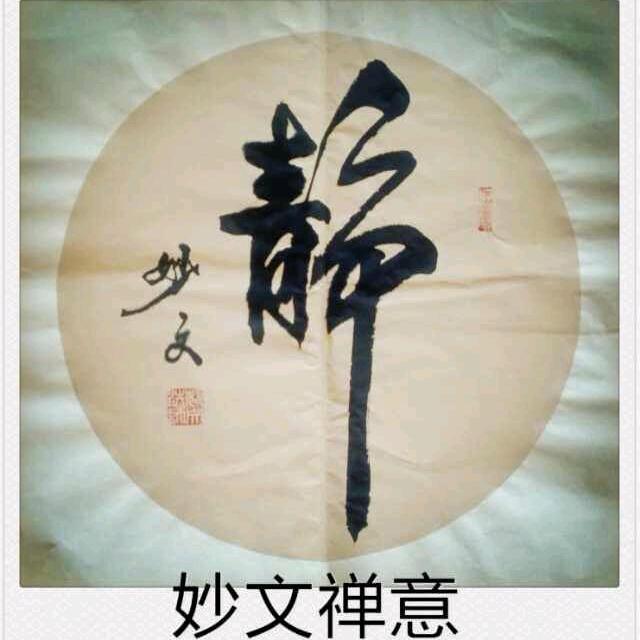 静
妙文
妙文禅意